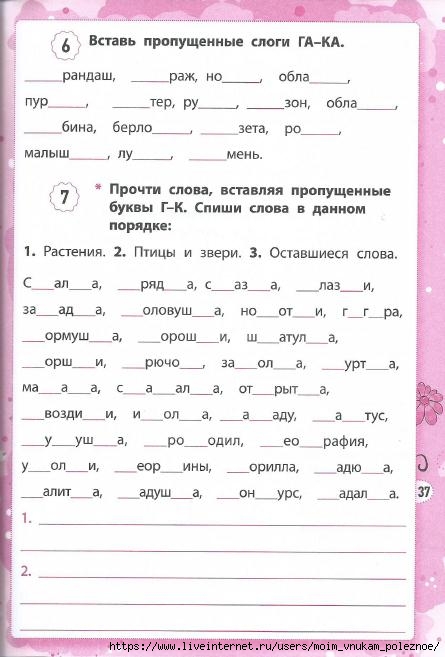 6 Вставь пропущенные слоги ГА–КА.
_____рандаш, _____раж, но_____, обла_____,
пур_____, _____тер, ру_____, _____зон, обла_____,
_____бина, берло_____, _____зета, ро_____,
малыш_____, лу_____, _____мень.
7 * Прочти слова, вставляя пропущенные
буквы Г–К. Спиши слова в данном
порядке:
1. Растения. 2. Птицы и звери. 3. Оставшиеся слова.
С___ал___а, ___ряд___а, с___аз___а, ___лаз___и,
за___ад___а, ___оловуш___а, но___от___и, г___г___ра,
___ормуш___а, ___орош___и, ш___атул___а,
___орш___и, ___рючо___, за___ол___а, ___урт___а,
ма___а___а, с___а___ал___а, от___рыт___а,
___возди___и, и___ол___а, ___а___аду, ___а___тус,
___у___уш___а, ___ро___одил, ___ео___рафия,
у___ол___и, ___еор___ины, ___орилла, ___адю___а,
___алит___а, ___адуш___а, ___он___урс, ___адал___а.
1.
37
2.
https://www.liveinternet.ru/users/moim_vnukam_poleznoe/